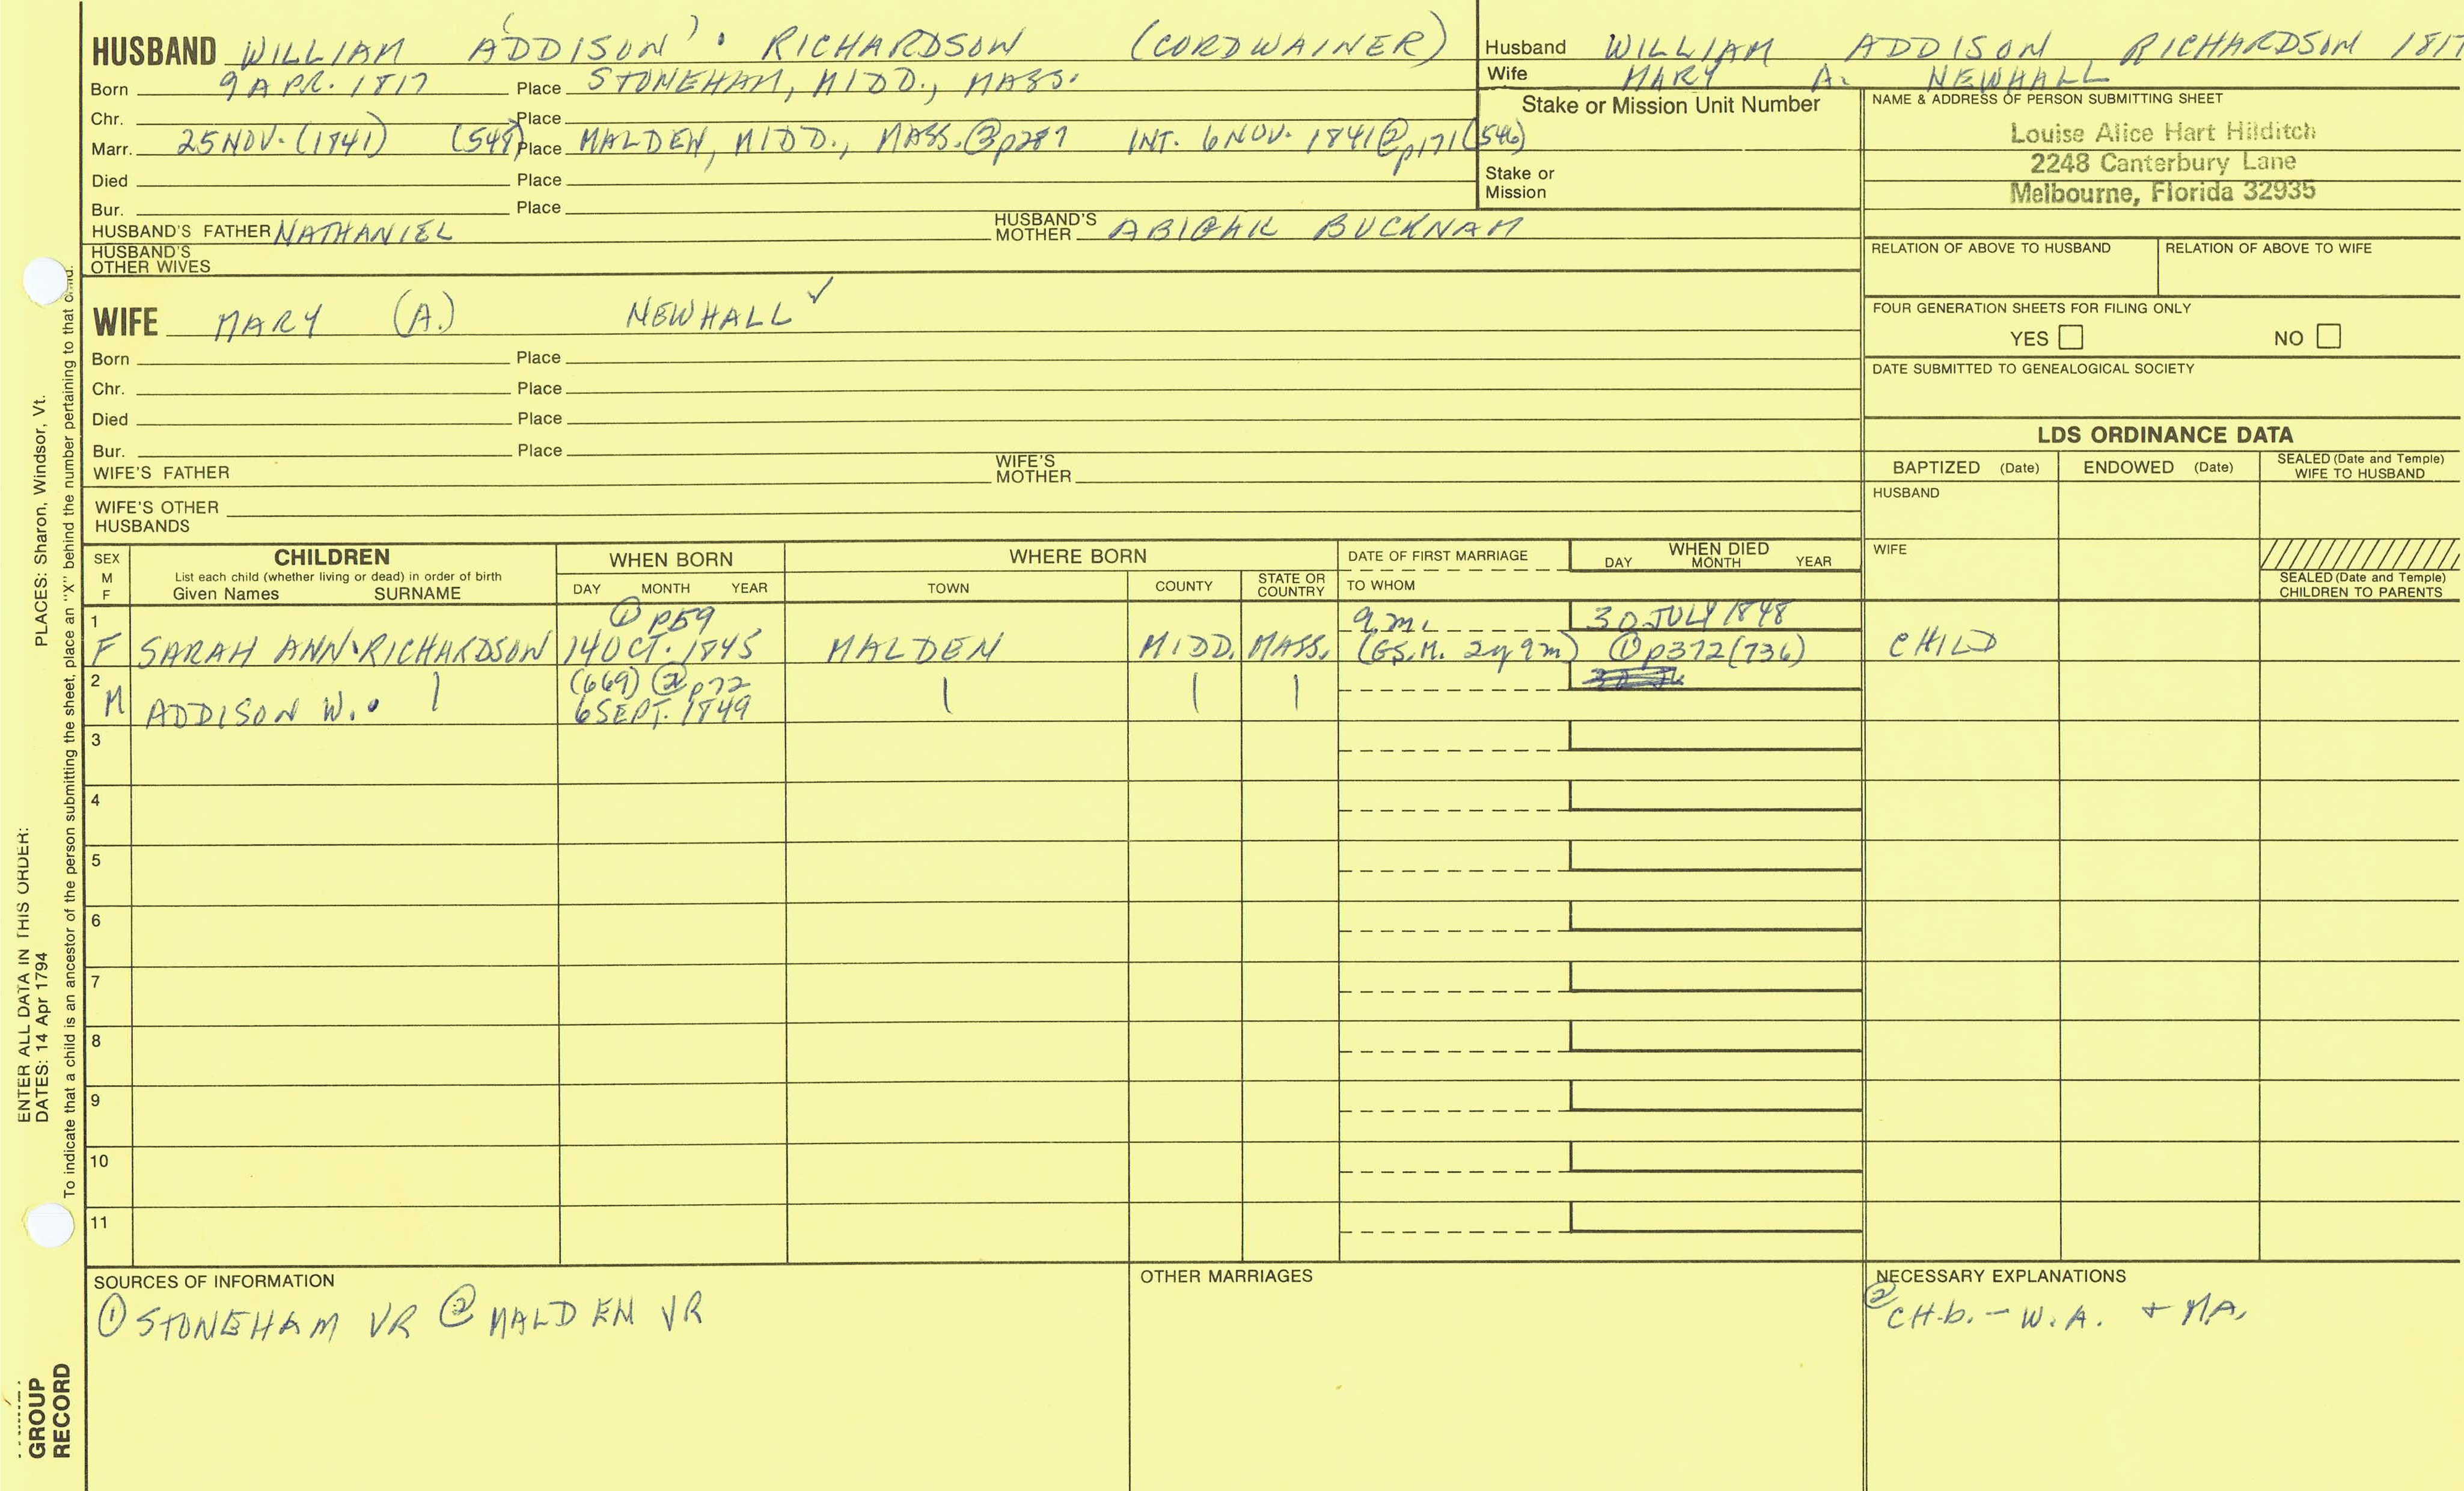 HUSBAND WILLIAM (ADDISON) · RICHARDSON (CORDWAINER)
Born 9 APR. 1817 Place STONEHAM, MIDD., MASS.
Chr. Place
Marr. 25 NOV. (1841) (548) Place MALDEN, MIDD., MASS. ② p287 INT. 6 NOV. 1841 ② p171 (546)
Died Place
Bur. Place
HUSBAND'S FATHER NATHANIEL HUSBAND'S MOTHER ABIGAIL BUCKNAM
HUSBAND'S OTHER WIVES
Husband WILLIAM ADDISON RICHARDSON 1817
Wife MARY A. NEWHALL
Stake or Mission Unit Number
Stake or
Mission
NAME & ADDRESS OF PERSON SUBMITTING SHEET
Louise Alice Hart Hilditch
2248 Canterbury Lane
Melbourne, Florida 32935
RELATION OF ABOVE TO HUSBAND RELATION OF ABOVE TO WIFE
FOUR GENERATION SHEETS FOR FILING ONLY
YES NO
DATE SUBMITTED TO GENEALOGICAL SOCIETY
WIFE MARY (A.) NEWHALL ✓
Born Place
Chr. Place
Died Place
Bur. Place
WIFE'S FATHER WIFE'S MOTHER
WIFE'S OTHER
HUSBANDS
LDS ORDINANCE DATA
BAPTIZED (Date) ENDOWED (Date) SEALED (Date and Temple) WIFE TO HUSBAND
HUSBAND
WIFE
SEALED (Date and Temple)
CHILDREN TO PARENTS
SEX M F CHILDREN WHEN BORN WHERE BORN DATE OF FIRST MARRIAGE WHEN DIED
List each child (whether living or dead) in order of birth
Given Names SURNAME DAY MONTH YEAR TOWN COUNTY STATE OR COUNTRY TO WHOM DAY MONTH YEAR
1 ① p59 9m. 30 JULY 1848
F SARAH ANN · RICHARDSON 14 OCT. 1845 MALDEN MIDD. MASS. (G.S.M. 2y 9m) ① p372 (736) CHILD
2 (669) ② p72
M ADDISON W. · | 6 SEPT. 1849 | | |
3
4
5
6
7
8
9
10
11
SOURCES OF INFORMATION
① STONEHAM VR ② MALDEN VR
OTHER MARRIAGES
NECESSARY EXPLANATIONS
② CH. b. – W. A. + M A.
ENTER ALL DATA IN THIS ORDER:
DATES: 14 Apr 1794 PLACES: Sharon, Windsor, Vt.
To indicate that a child is an ancestor of the person submitting the sheet, place an "X" behind the number pertaining to that child.
GROUP
RECORD